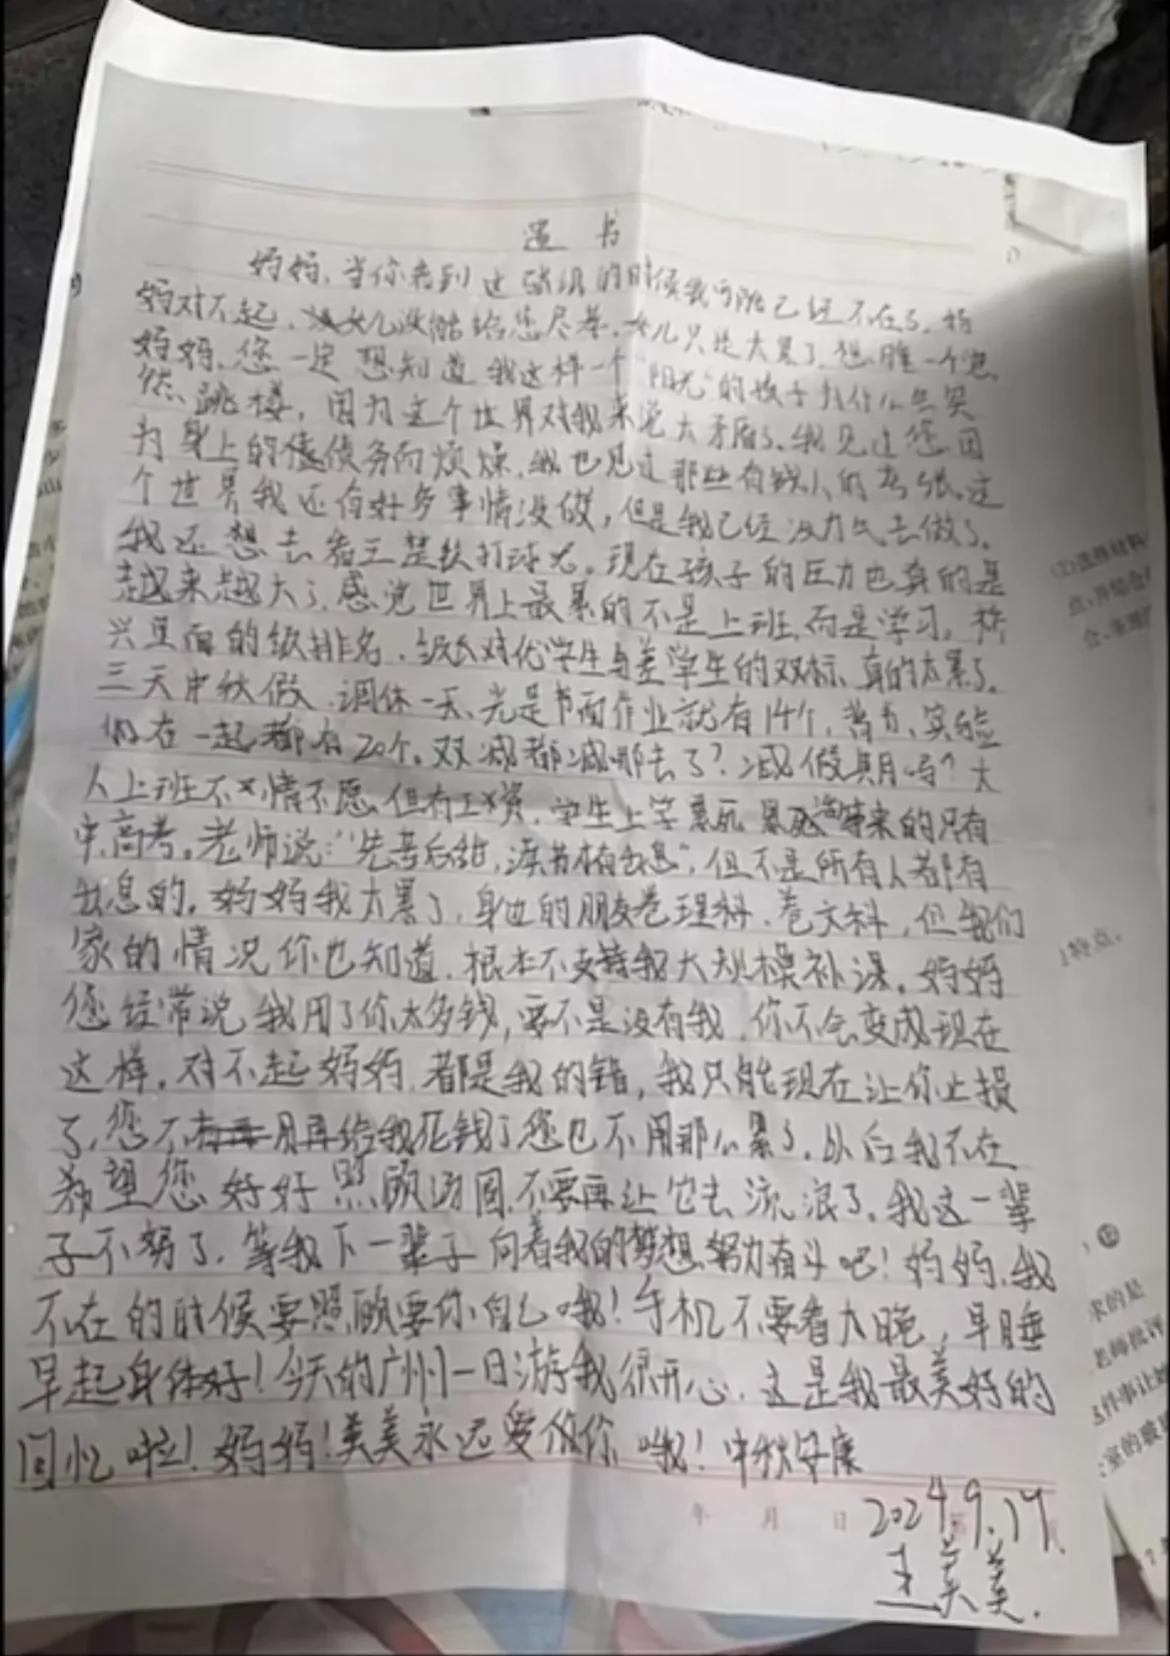 遗书
妈妈，当你看到这封遗书的时候我可能已经不在了，妈
妈对不起，女儿没能给您尽孝，女儿只是太累了，想睡一个觉，
妈妈，您一定想知道我这样一个“阳光”的孩子为什么会突
然跳楼，因为这个世界对我来说太矛盾了。我见过您因
为身上的债务而烦燥，我也见过那些有钱人的夸张。这
个世界我还有好多事情没做，但是我已经没力气去做了。
我还想去看王楚钦打球呢。现在孩子的压力也真的是
越来越大了，感觉世界上最累的不是上班，而是学习，
里面的级排名，级长对优学生与差学生的双标，真的太累了。
三天中秋假，调休一天，光是书面作业就有14个，背书、实验
在一起都有20个。双减都减哪去了？减假期吗？大
人上班不情不愿，但有工资，学生上学累死累死等来的只有
中高考。老师说：“先苦后甜，读书才有出息”，但不是所有人都有
出息的。妈妈我太累了，身边的朋友卷理科，卷文科，但我们
家的情况你也知道，根本不支持我大规模补课。妈妈
您经常说我用了你太多钱，要不是没有我，你不会变成现在
这样。对不起妈妈，都是我的错，我只能现在让你止损
了，您不用再给我花钱了您也不用那么累了。以后我不在
希望您好好照顾汤圆，不要再让它去流浪了。我这一辈
子不努了，等我下一辈子向着我的梦想努力奋斗吧！妈妈，我
不在的时候要照顾要你自己哦！手机不要看太晚，早睡
早起身体好！今天的广州一日游我很开心，这是我最美好的
回忆啦！妈妈！美美永远爱你哦！中秋安康
年 月 日 2024.9.17
王美美.
(2)选择材料
点，并结合
特点。
求的是
老师批评
件事让她